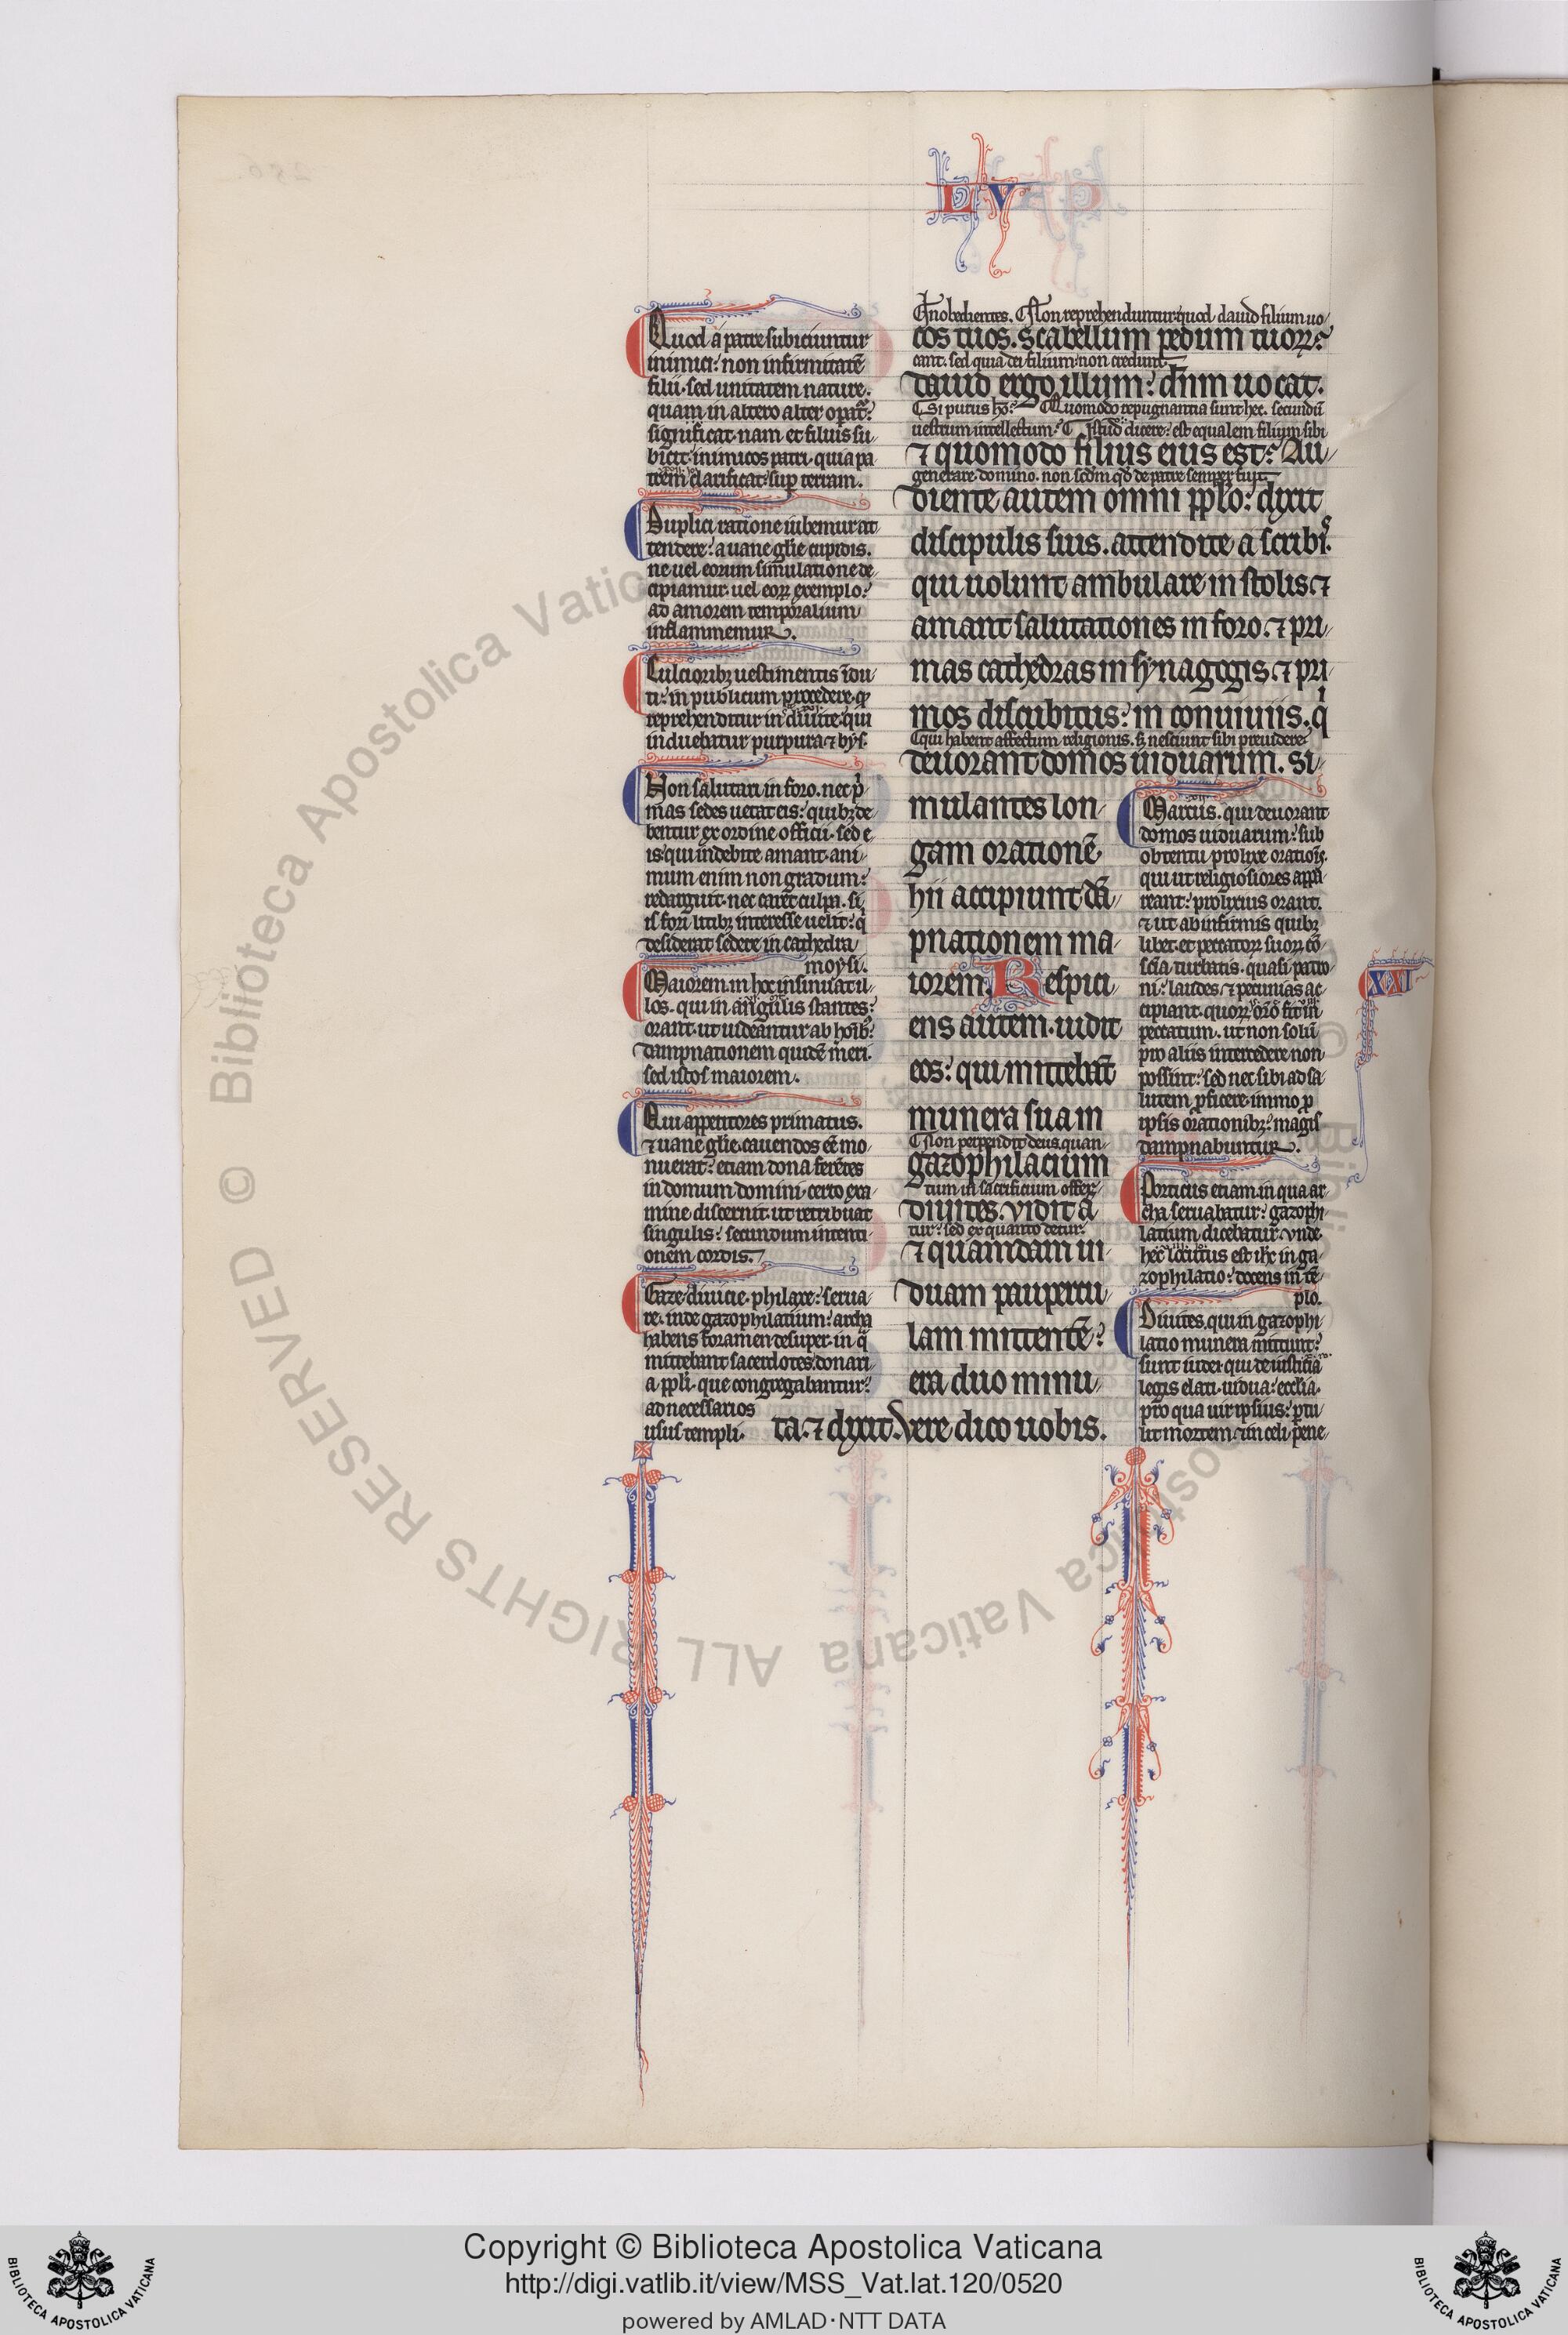 LV
Quod a patre subiciuntur
inimici: non infirmitatē
filii. sed unitatem nature.
quam in altero alter opat᷑:
significat. nam et filius su/
bicit inimicos patri. quia pa
trem clarificat sup terram.
Duplici ratione iubemur at
tendere: a uane glīe cupidis.
ne uel eorum simulatione de/
cipiamur. uel eoꝝ exemplo:
ad amorem temporalium
inflammemur.
Cultioribꝫ uestimentis īdu/
ti: in publicum procedere. qꝫ
reprehenditur in diuite. qui
induebatur purpura ⁊ bys.
Non salutari in foro. nec p̄/
mas sedes uetat eis: quibꝫ de/
bentur ex ordine officii. sed e
is qui indebite amant. ani/
mum enim non gradum:
redarguit. nec caret culpa. si
is fori litibꝫ interesse uelit: q̇
desiderat sedere in cathedra
moysi.
Maiorem. in hoc insinuat il/
los. qui in angulis stantes:
orant. ut uideantur ab hoībꝫ:
dampnationem quidē meri.
sed istos maiorem.
Qui appetitores primatus.
⁊ uane glīe. cauendos eē mo/
nuerat: etiam dona ferētes
in domum domini. certo exa/
mine discernit. ut retribuat
singulis: secundum intenti/
onem cordis.
Gaze. diuicie. philaxe: serua/
re. inde gazophilatium: archa
habens foramen desuper. in q̄
mittebant sacerdotes. donari/
a ppli. que congregabantur:
ad necessarios
usus templi.
Inobedientes. Non reprehenduntur quod dauid filium uo/
cos tuos. Scabellum pedum tuoꝝ:
cant. sed quia dei filium: non credunt.
dauid ergo illum: dn̄m uocat.
Si purus hō: Quomodo repugnantia sunt hec. secundū
uestrum intellectum. Istud dicere: est equalem filium sibi
⁊ quomodo filius eius est: Au/
generare domino. non scdm qd de patre semper fuit.
diente autem omni pplo: dixit
discipulis suis. attendite a scribis.
qui uolunt ambulare in stolis ⁊
amant salutationes in foro. ⁊ pri/
mas cathedras in synagogis. ⁊ pri
mos discubitus: in conuiuiis. q̇
qui habent affectum religionis. sꝫ nesciunt sibi preuidere
deuorant domos uiduarum. Si/
mulantes lon/
gam orationē
hii accipiunt dā/
pnationem ma/
iorem. Respici/
ens autem. uidit
eos: qui mittebāt
munera sua in
Non perpendit deus. quan/
gazophilacium
tum in sacrificium offer/
diuites. Vidit a
tur: sed ex quanto detur.
⁊ quamdam ui/
duam paupercu/
lam mittentē:
era duo minu/
ta. ⁊ dixit. Vere dico uobis.
Marcus. qui deuorant
domos uiduarum: sub
obtentu prolixe oratiōis.
qui ut religiosiores appā
reant: prolixius orant.
⁊ ut ab infirmis quibꝫ
libet. et peccatoꝝ suoꝝ cō/
scīa turbatis. quasi patro/
ni: laudes ⁊ pecunias ac
cipiant. quoꝝ orō fit in
peccatum. ut non solū
pro aliis intercedere non
possint: sed nec sibi ad sa/
lutem ꝓficere. immo ꝓ
ipsis orationibꝫ: magis
dampnabuntur.
XXI
Porticus etiam. in qua ar/
cha seruabatur: gazophi/
latium dicebatur. vnde
hec locutus est ihc in ga/
zophilatio: docens in tē/
plo.
Diuites. qui in gazophi/
latio munera mittunt:
sunt iudei qui de iusticia
legis elati. uidua: ecclīa.
pro qua uir ipsius: ptu/
lit mortem. ⁊ in celi pene/
Copyright © Biblioteca Apostolica Vaticana
http://digi.vatlib.it/view/MSS_Vat.lat.120/0520
powered by AMLAD·NTT DATA
BIBLIOTECA APOSTOLICA VATICANA
BIBLIOTECA APOSTOLICA VATICANA
© Biblioteca Apostolica Vaticana ALL RIGHTS RESERVED